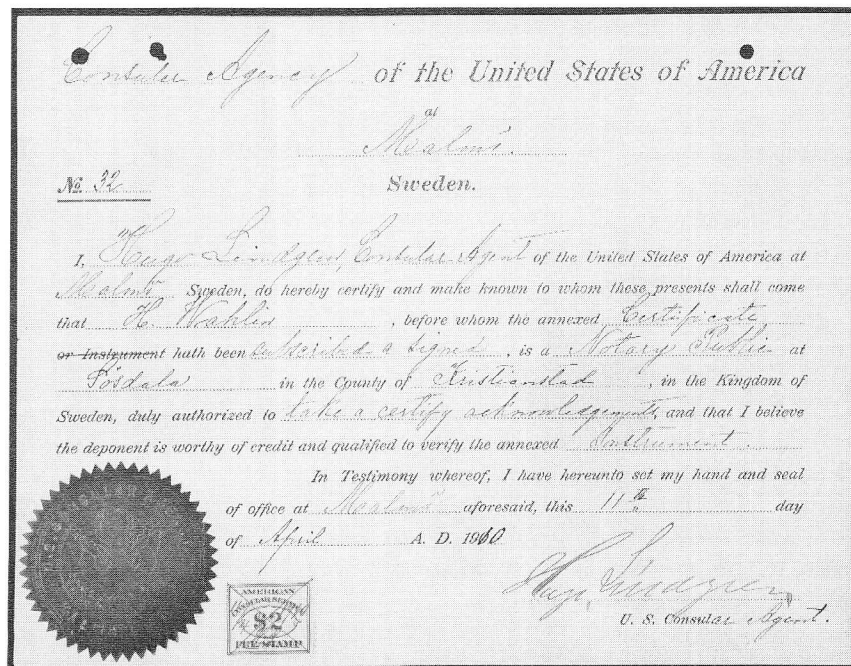 Consular Agency of the United States of America
at
Malmö.
No. 32
Sweden.
I, Hugo Lindgren, Consular Agent of the United States of America at
Malmö Sweden, do hereby certify and make known to whom these presents shall come
that H. Wahlin, before whom the annexed Certificate
or Instrument hath been subscribed & signed, is a Notary Public at
Sösdala in the County of Kristianstad, in the Kingdom of
Sweden, duly authorized to take & certify acknowledgements, and that I believe
the deponent is worthy of credit and qualified to verify the annexed Instrument.
In Testimony whereof, I have hereunto set my hand and seal
of office at Malmö aforesaid, this 11th day
of April A. D. 1910
Hugo Lindgren
U. S. Consular Agent.
AMERICAN
CONSULAR SERVICE
$2
FEE STAMP